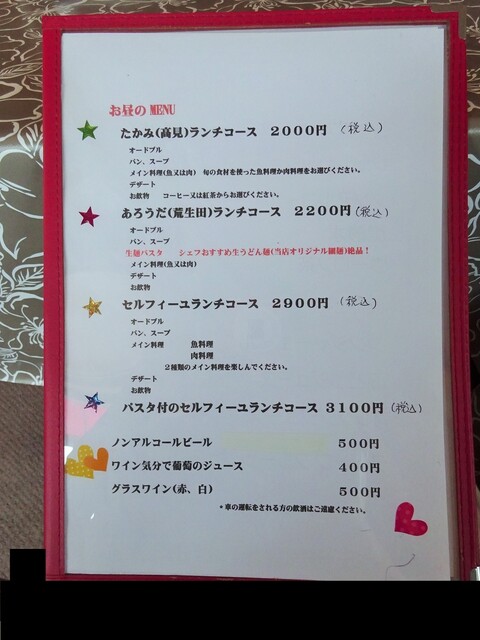 お昼の MENU
たかみ(高見)ランチコース 2000円 (税込)
オードブル
パン、スープ
メイン料理(魚又は肉) 旬の食材を使った魚料理か肉料理をお選びください。
デザート
お飲物 コーヒー又は紅茶からお選びください。
あろうだ(荒生田)ランチコース 2200円 (税込)
オードブル
パン、スープ
生麺パスタ シェフおすすめ生うどん麺(当店オリジナル細麺)絶品!
メイン料理(魚又は肉)
デザート
お飲物
セルフィーユランチコース 2900円 (税込)
オードブル
パン、スープ
メイン料理 魚料理
肉料理
2種類のメイン料理を楽しんでください。
デザート
お飲物
パスタ付のセルフィーユランチコース 3100円 (税込)
ノンアルコールビール 500円
ワイン気分で葡萄のジュース 400円
グラスワイン(赤、白) 500円
*車の運転をされる方の飲酒はご遠慮ください。